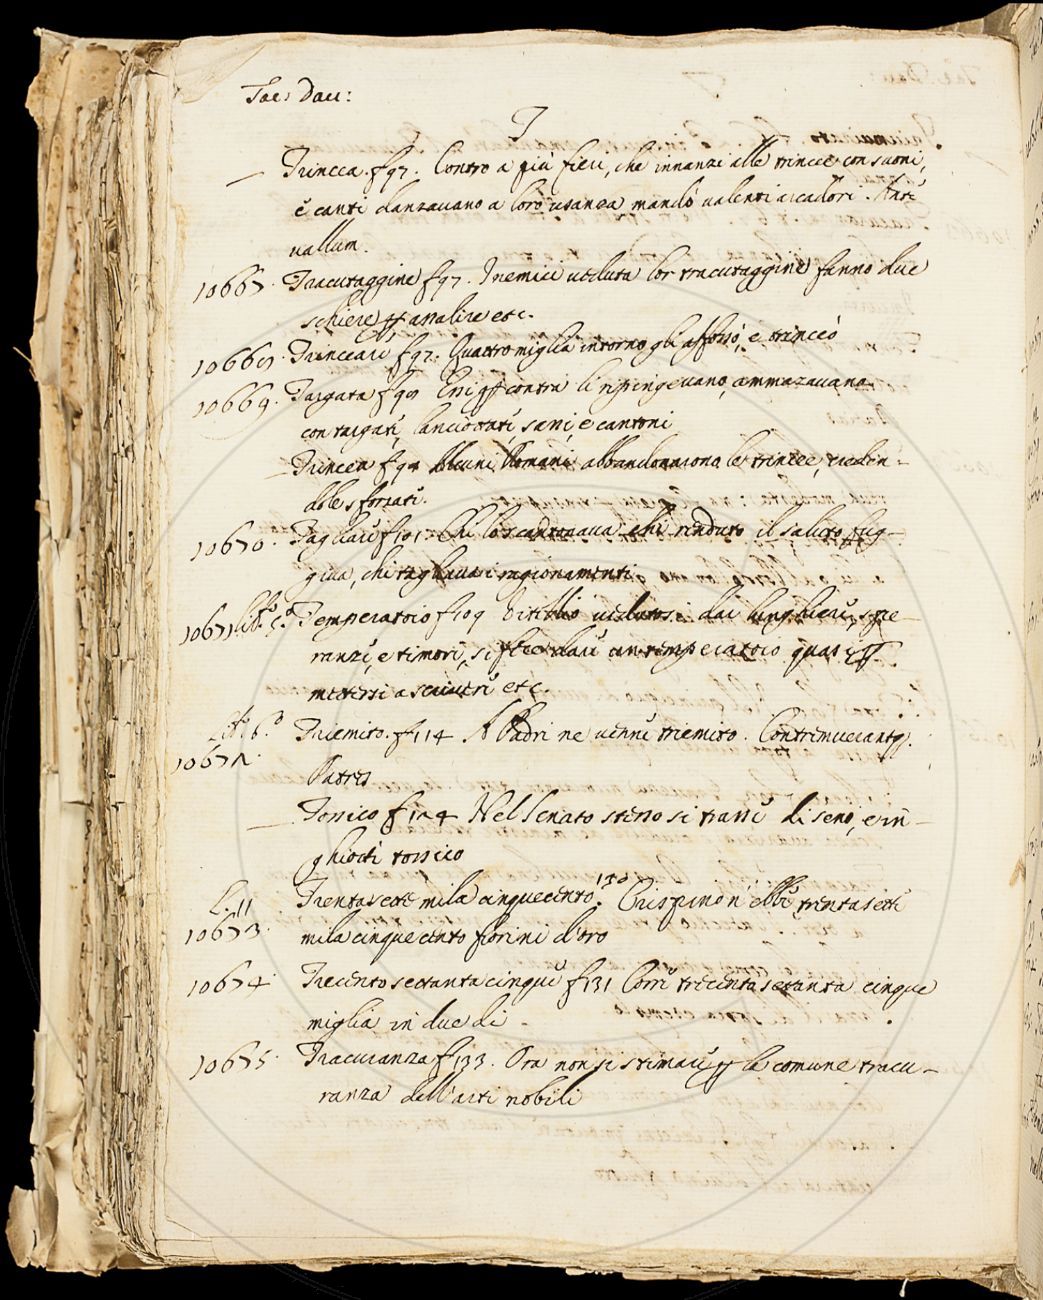 Tac: Dau:
T
Trincea. f 97. Contro a più fieri, che innanzi alle trincee con suoni,
e canti danzauano a loro usanza mandò ualenti arcadori. Ante
uallum.
10667. Tracutaggine f 97. Inemici ueduta lor tracutaggine fanno due
schiere assalire etc.
10668. Trincear f 97. Quattro miglia intorno gli afforzò, e trinceò
10669. Targata f 98 Essi contra li rispingeuano, ammazauano
con targate, lanciottate, sassi, e cantoni
Trincea f 99 Alcuni Romani abbandonarono le trincee, creden-
dole sforzate.
10670. Tagliare f 101. Chi lo scantonaua chi renduto il saluto fug-
giua, chi tagliaua i ragionamenti
10671 lib.º 5.º Temperatoio f 109 Vitellio uedutosi dar lunghiere, spe-
ranze, e timori, si fece dare un temperatoio quasi
mettersi a scriuere etc.
Lib.º 6.º Triemito. f 114 A Padri ne uenne triemito. Contremuerantq.
10672. Patres
Tossico f 124 Nel Senato stesso si trasse di seno, e in-
ghiottì tossico
L. 11 Trentasette mila cinquecento. 130 Crispino n'ebbe trentasette
10673. mila cinquecento fiorini d'oro
10674. Trecento settantacinque f 131 Corse trecento settanta cinque
miglia in due di
10675. Tracuranza f 133. Ora non si stimare la comune tracu-
ranza dell'arti nobili